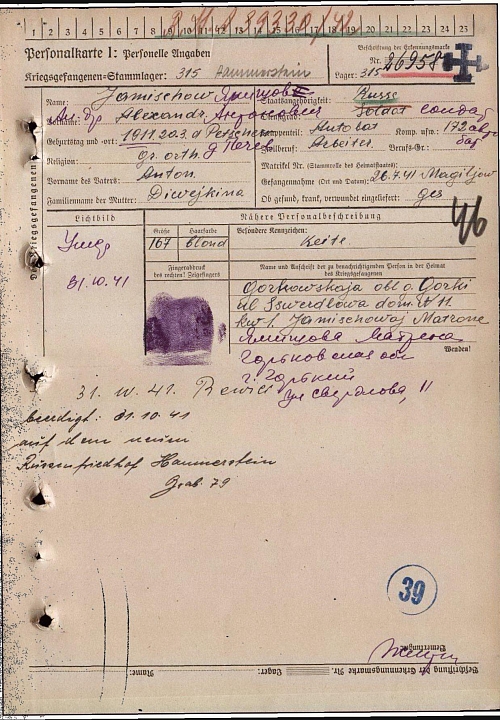 1 2 3 4 5 6 7 8 9 10 11 12 13 14 15 16 17 18 19 20 21 22 23
Personalkarte I: Personelle Angaben
Kriegsgefangenen-Stammlager: 315 Hammerstein
Beschriftung der Erkennungsmarke
Nr. 26958
Lager: 315
Des Kriegsgefangenen
Name: Jamischow Ямишов
Vorname: Alexandr Антонович
Geburtstag und -ort: 1911.20.3.
Religion: gr. orth.
Vorname des Vaters: Anton.
Familienname der Mutter: Diwejkina
Staatsangehörigkeit: Russe
Dienstgrad: Soldat солдат
Truppenteil: Autobat Komp. usw.: 172
Zivilberuf: Arbeiter. Berufs-Gr.:
Matrikel Nr. (Stammrolle des Heimatstaates):
Gefangennahme (Ort und Datum): 26.7.41 Magiljow
Ob gesund, krank, verwundet eingeliefert: ges
46
Lichtbild
Nähere Personalbeschreibung
Größe Haarfarbe Besondere Kennzeichen:
167 blond Keite.
Умер
31.10.41
Fingerabdruck
des rechten! Zeigefingers
Name und Anschrift der zu benachrichtigenden Person in der Heimat
des Kriegsgefangenen
Gorkowskaja obl. g. Gorki
ul Sswerdlowa dom № 11.
kw 1. Jamischowaj Matrone
Ямишова Матрена
Горьковская обл
г. Горький
ул Свердлова, 11
Wenden!
beerdigt: 31.10.41
auf dem neuen
Russenfriedhof Hammerstein
Grab. 79
39
Bemerkungen:
Name: Lager: Beschriftung der Erkennungsmarke Nr.